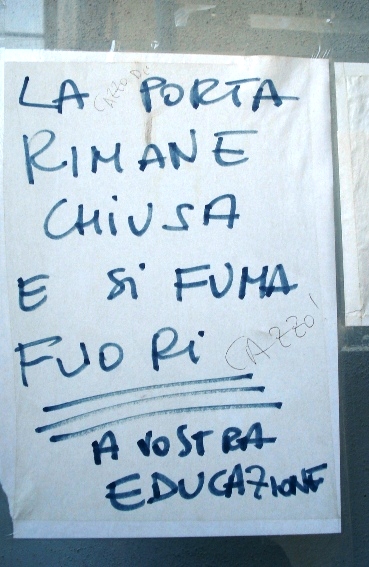 LA CAZZO DI PORTA
RIMANE
CHIUSA
E Si FUMA
FUORi CAZZO!
A VOSTRA
EDUCAZIONE